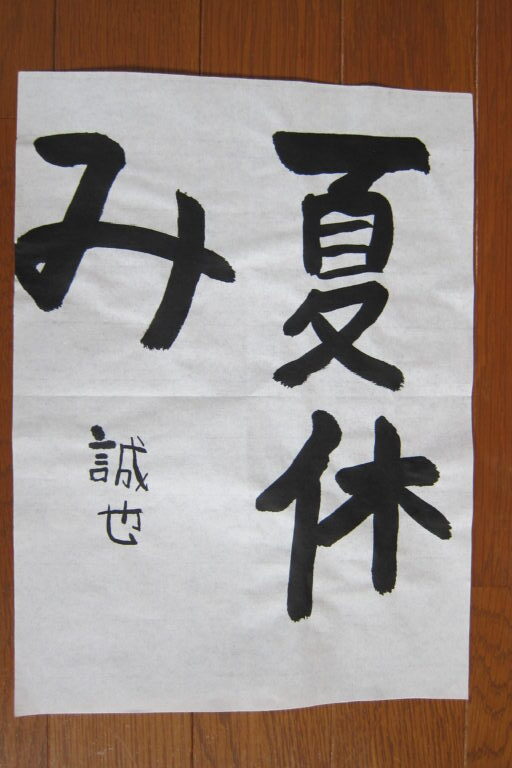 夏休
み
誠也